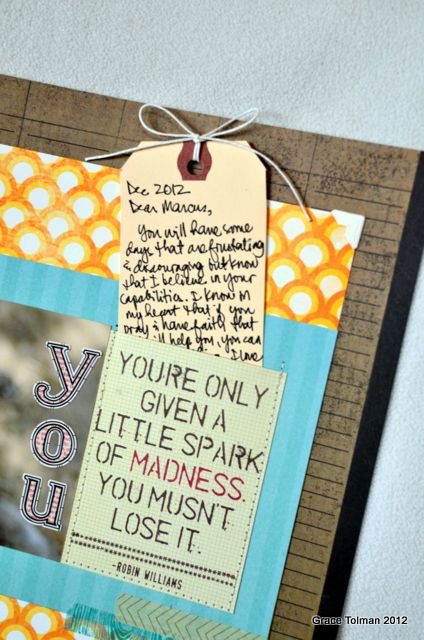 Dec 2012
Dear Marcus,
You will have some
days that are frustating
& discouraging but know
that I believe in your
capabilities. I know in
my heart that if you
pray & have faith that
will help you, you can
I love
YOU'RE ONLY
GIVEN A
LITTLE SPARK
OF MADNESS.
YOU MUSN'T
LOSE IT.
-ROBIN WILLIAMS
you
Grace Tolman 2012